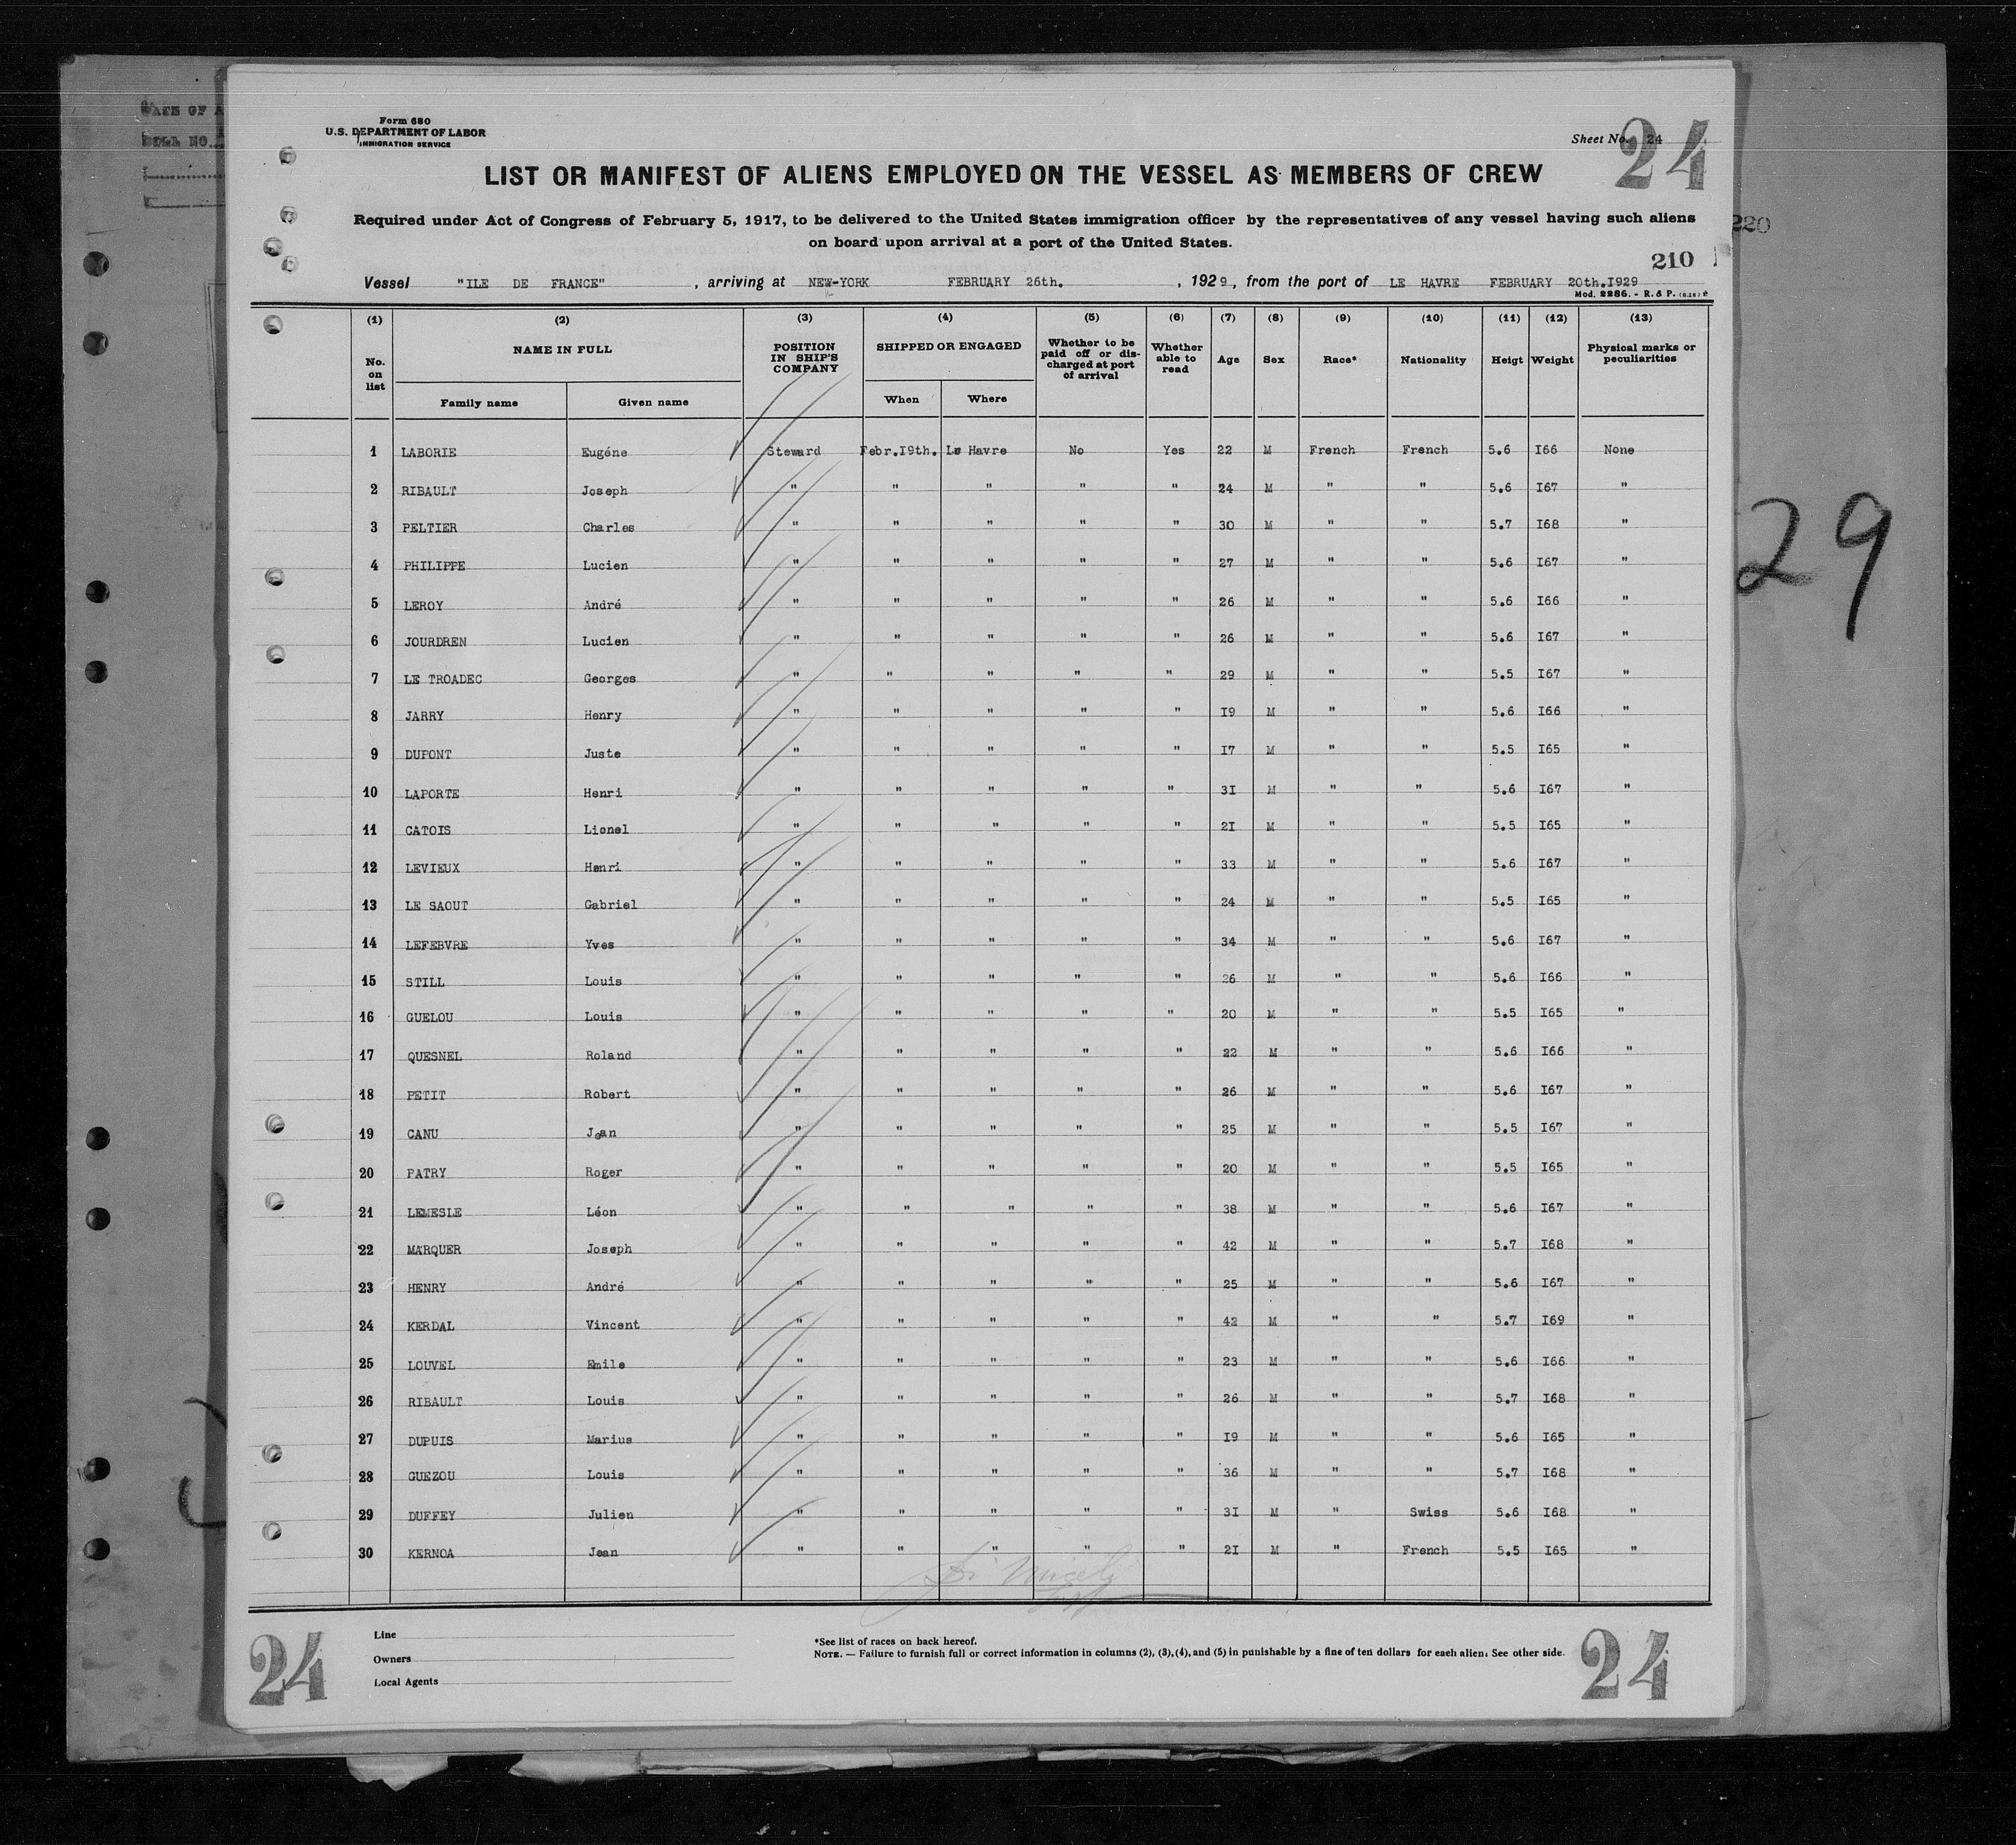 Form 680
U.S. DEPARTMENT OF LABOR
IMMIGRATION SERVICE
Sheet No. 24
24
LIST OR MANIFEST OF ALIENS EMPLOYED ON THE VESSEL AS MEMBERS OF CREW
Required under Act of Congress of February 5, 1917, to be delivered to the United States immigration officer by the representatives of any vessel having such aliens
on board upon arrival at a port of the United States.
220
210
Vessel "ILE DE FRANCE" , arriving at NEW-YORK FEBRUARY 26th. , 1929, from the port of LE HAVRE FEBRUARY 20th.I929
Mod. 2286. - R. & P. (6.28)
(1) (2) (3) (4) (5) (6) (7) (8) (9) (10) (11) (12) (13)
No. on list NAME IN FULL Family name Given name POSITION IN SHIP'S COMPANY SHIPPED OR ENGAGED When Where Whether to be paid off or discharged at port of arrival Whether able to read Age Sex Race* Nationality Heigt Weight Physical marks or peculiarities
1 LABORIE Eugéne Steward Febr.I9th. Le Havre No Yes 22 M French French 5.6 I66 None
2 RIBAULT Joseph " " " " " 24 M " " 5.6 I67 "
3 PELTIER Charles " " " " " 30 M " " 5.7 I68 "
4 PHILIPPE Lucien " " " " " 27 M " " 5.6 I67 "
5 LEROY André " " " " " 26 M " " 5.6 I66 "
6 JOURDREN Lucien " " " " " 26 M " " 5.6 I67 "
7 LE TROADEC Georges " " " " " 29 M " " 5.5 I67 "
8 JARRY Henry " " " " " I9 M " " 5.6 I66 "
9 DUPONT Juste " " " " " I7 M " " 5.5 I65 "
10 LAPORTE Henri " " " " " 3I M " " 5.6 I67 "
11 CATOIS Lionel " " " " " 2I M " " 5.5 I65 "
12 LEVIEUX Henri " " " " " 33 M " " 5.6 I67 "
13 LE SAOUT Gabriel " " " " " 24 M " " 5.5 I65 "
14 LEFEBVRE Yves " " " " " 34 M " " 5.6 I67 "
15 STILL Louis " " " " " 26 M " " 5.6 I66 "
16 GUELOU Louis " " " " " 20 M " " 5.5 I65 "
17 QUESNEL Roland " " " " " 22 M " " 5.6 I66 "
18 PETIT Robert " " " " " 26 M " " 5.6 I67 "
19 CANU Jean " " " " " 25 M " " 5.5 I67 "
20 PATRY Roger " " " " " 20 M " " 5.5 I65 "
21 LEMESLE Léon " " " " " 38 M " " 5.6 I67 "
22 MARQUER Joseph " " " " " 42 M " " 5.7 I68 "
23 HENRY André " " " " " 25 M " " 5.6 I67 "
24 KERDAL Vincent " " " " " 42 M " " 5.7 I69 "
25 LOUVEL Emile " " " " " 23 M " " 5.6 I66 "
26 RIBAULT Louis " " " " " 26 M " " 5.7 I68 "
27 DUPUIS Marius " " " " " I9 M " " 5.6 I65 "
28 GUEZOU Louis " " " " " 36 M " " 5.7 I68 "
29 DUFFEY Julien " " " " " 3I M " Swiss 5.6 I68 "
30 KERNOA Jean " " " " " 2I M " French 5.5 I65 "
29
Line
Owners
Local Agents
*See list of races on back hereof.
NOTE. — Failure to furnish full or correct information in columns (2), (3), (4), and (5) in punishable by a fine of ten dollars for each alien. See other side.
24
24